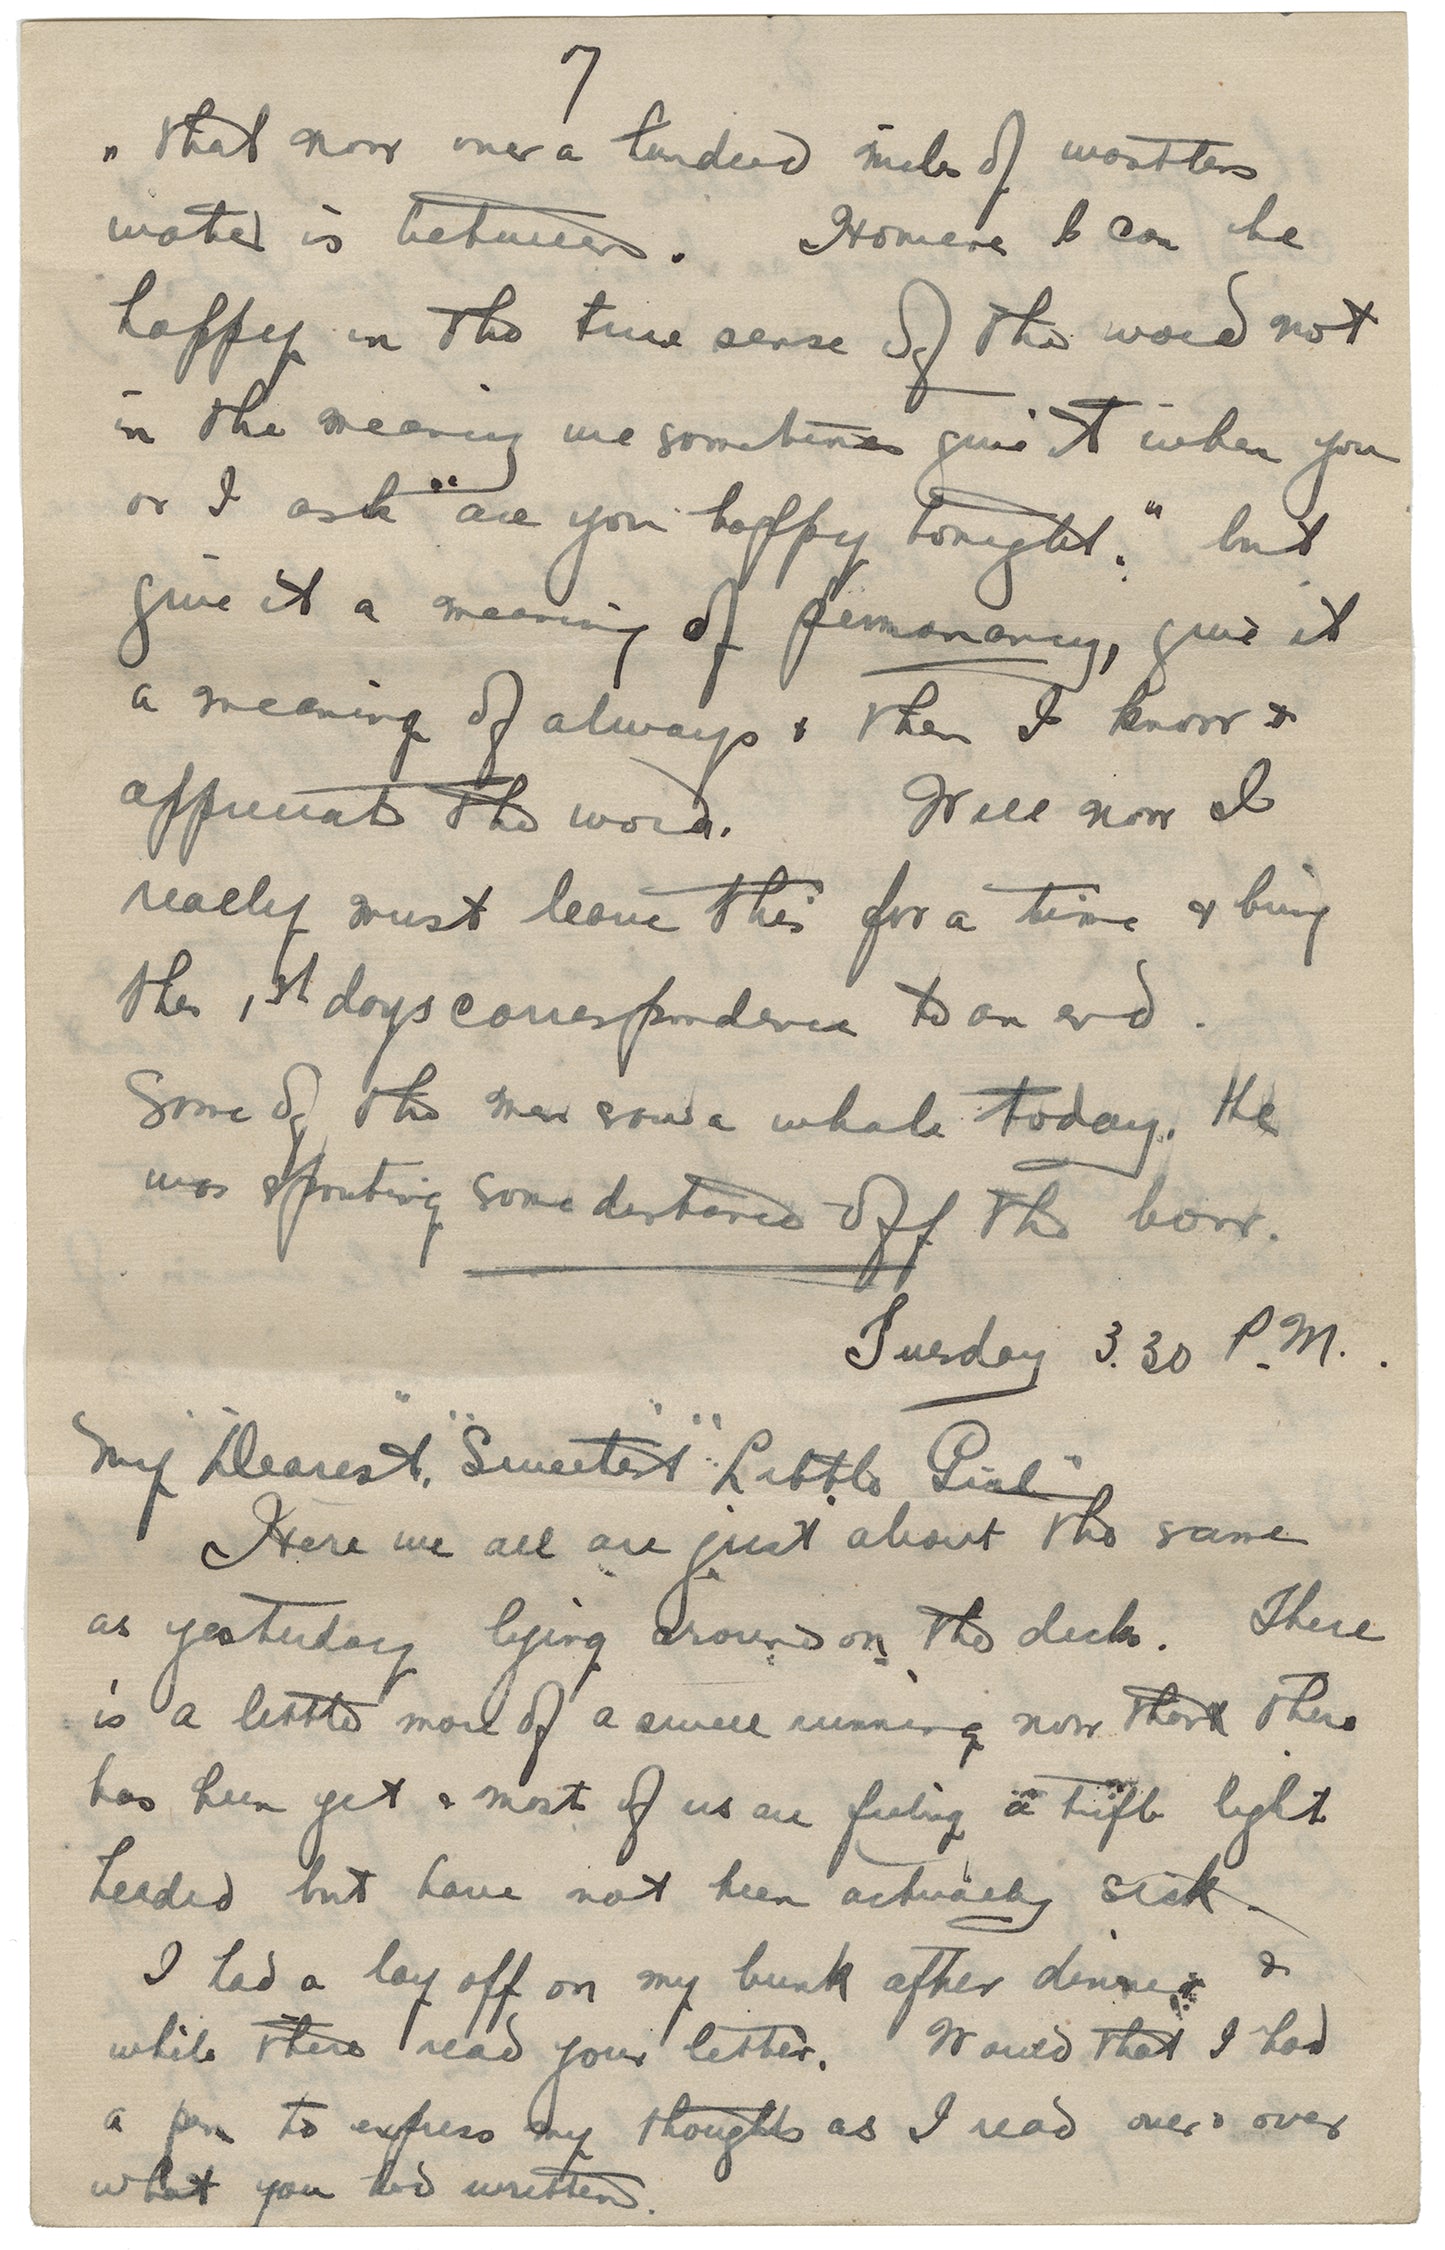 7
" that now over a hundred miles of
water is between. However I can be
happy in the true sense of the word not
in the meaning we sometimes give it when you
or I ask "are you happy tonight." but
give it a meaning of permanancy, give it
a meaning of always & then I know &
appreciate the word. Well now I
really must leave this for a time & bring
the 1st days correspondence to an end.
Some of the men saw a whale today. He
was spouting some distance off the bow.
Tuesday 3.30 P.M.
My "Dearest", "Sweetest" "Little Girl"
Here we all are just about the same
as yesterday lying around on the deck. There
is a little more of a swell running now than there
has been yet & most of us are feeling a trifle light
headed but have not been actually sick.
I had a lay off on my bunk after dinner &
while there read your letter. Would that I had
a pen to express my thoughts as I read over & over
what you had written.